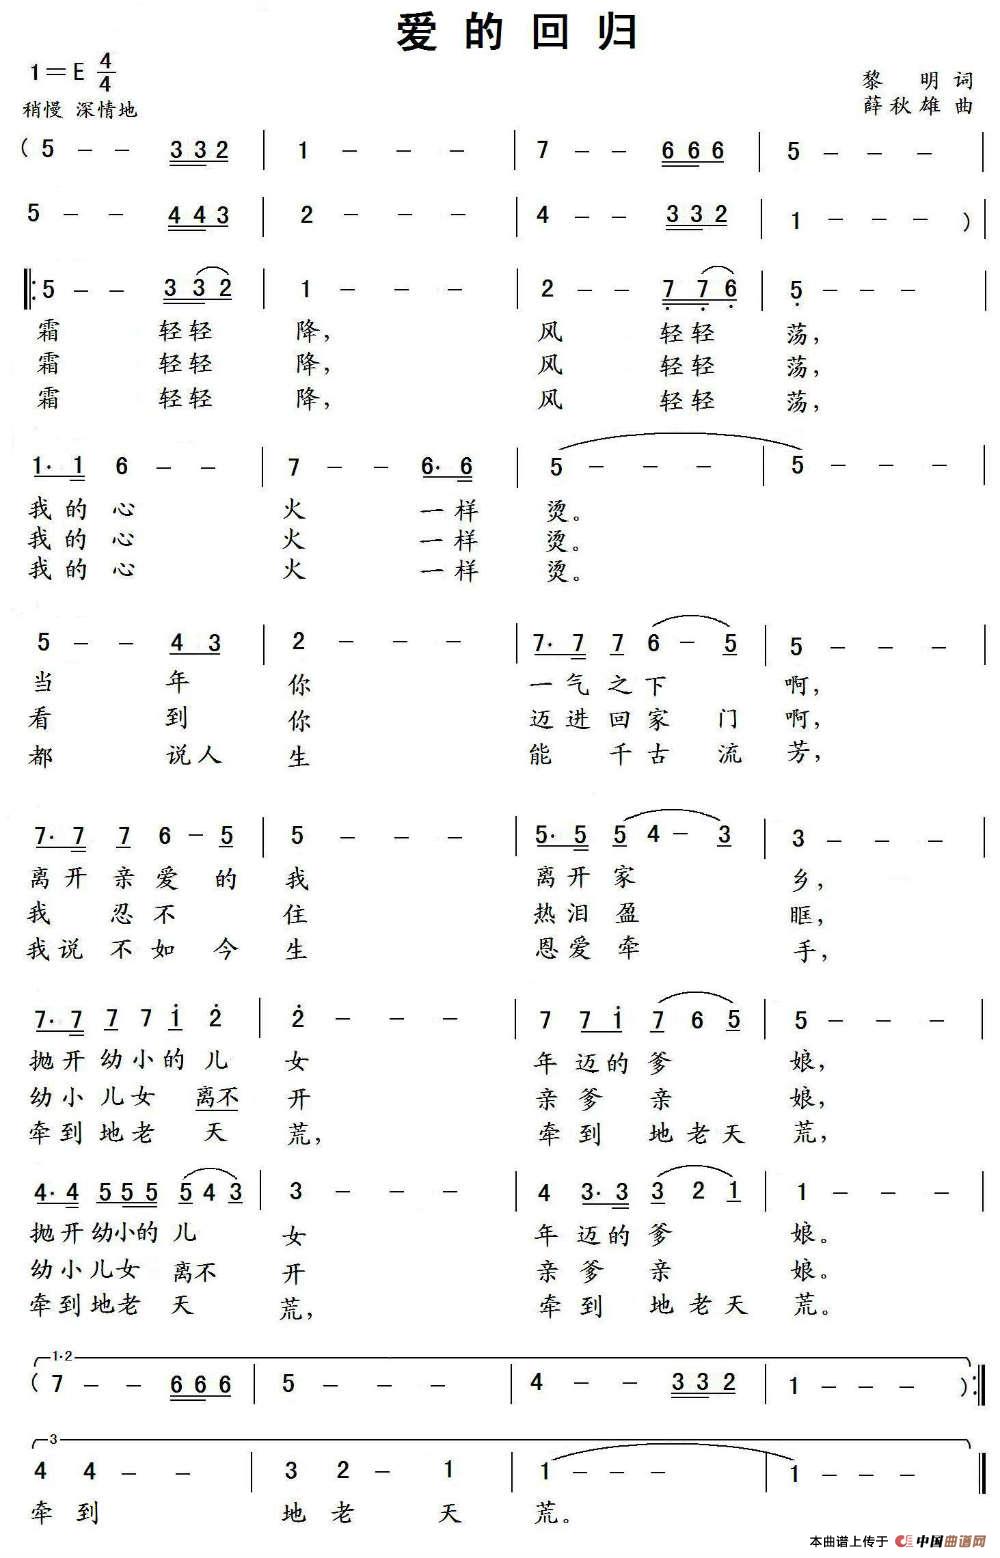 爱的回归
1=E 4/4
黎 明 词
稍慢 深情地
薛秋雄 曲
( 5 - - 3 3 2 | 1 - - - | 7 - - 6 6 6 | 5 - - - |
5 - - 4 4 3 | 2 - - - | 4 - - 3 3 2 | 1 - - - ) |
‖: 5 - - 3 3 2 | 1 - - - | 2 - - 7 7 6 | 5 - - - |
霜 轻轻 降, 风 轻轻 荡,
霜 轻轻 降, 风 轻轻 荡,
霜 轻轻 降, 风 轻轻 荡,
1· 1 6 - - | 7 - - 6· 6 | 5 - - - | 5 - - - |
我的心 火 一样 烫。
我的心 火 一样 烫。
我的心 火 一样 烫。
5 - - 4 3 | 2 - - - | 7· 7 7 6 - 5 | 5 - - - |
当 年 你 一气之下 啊,
看 到 你 迈进回家 门 啊,
都 说人 生 能 千古 流 芳,
7· 7 7 6 - 5 | 5 - - - | 5· 5 5 4 - 3 | 3 - - - |
离开亲爱 的 我 离开家 乡,
我 忍不 住 热泪盈 眶,
我说 不如 今 生 恩爱牵 手,
7· 7 7 7 1 2 | 2 - - - | 7 7 1 7 6 5 | 5 - - - |
抛开幼小的儿 女 年迈的爹 娘,
幼小儿女 离不 开 亲爹 亲 娘,
牵到地老 天 荒, 牵到 地老天 荒,
4· 4 5 5 5 5 4 3 | 3 - - - | 4 3· 3 3 2 1 | 1 - - - |
抛开幼小的 儿 女 年迈的爹 娘。
幼小儿女 离不 开 亲爹 亲 娘。
牵到地老 天 荒, 牵到 地老天 荒。
1·2
( 7 - - 6 6 6 | 5 - - - | 4 - - 3 3 2 | 1 - - - ) :‖
3
4 4 - - | 3 2 - 1 | 1 - - - | 1 - - - ‖
牵 到 地 老 天 荒。
本曲谱上传于 中国曲谱网